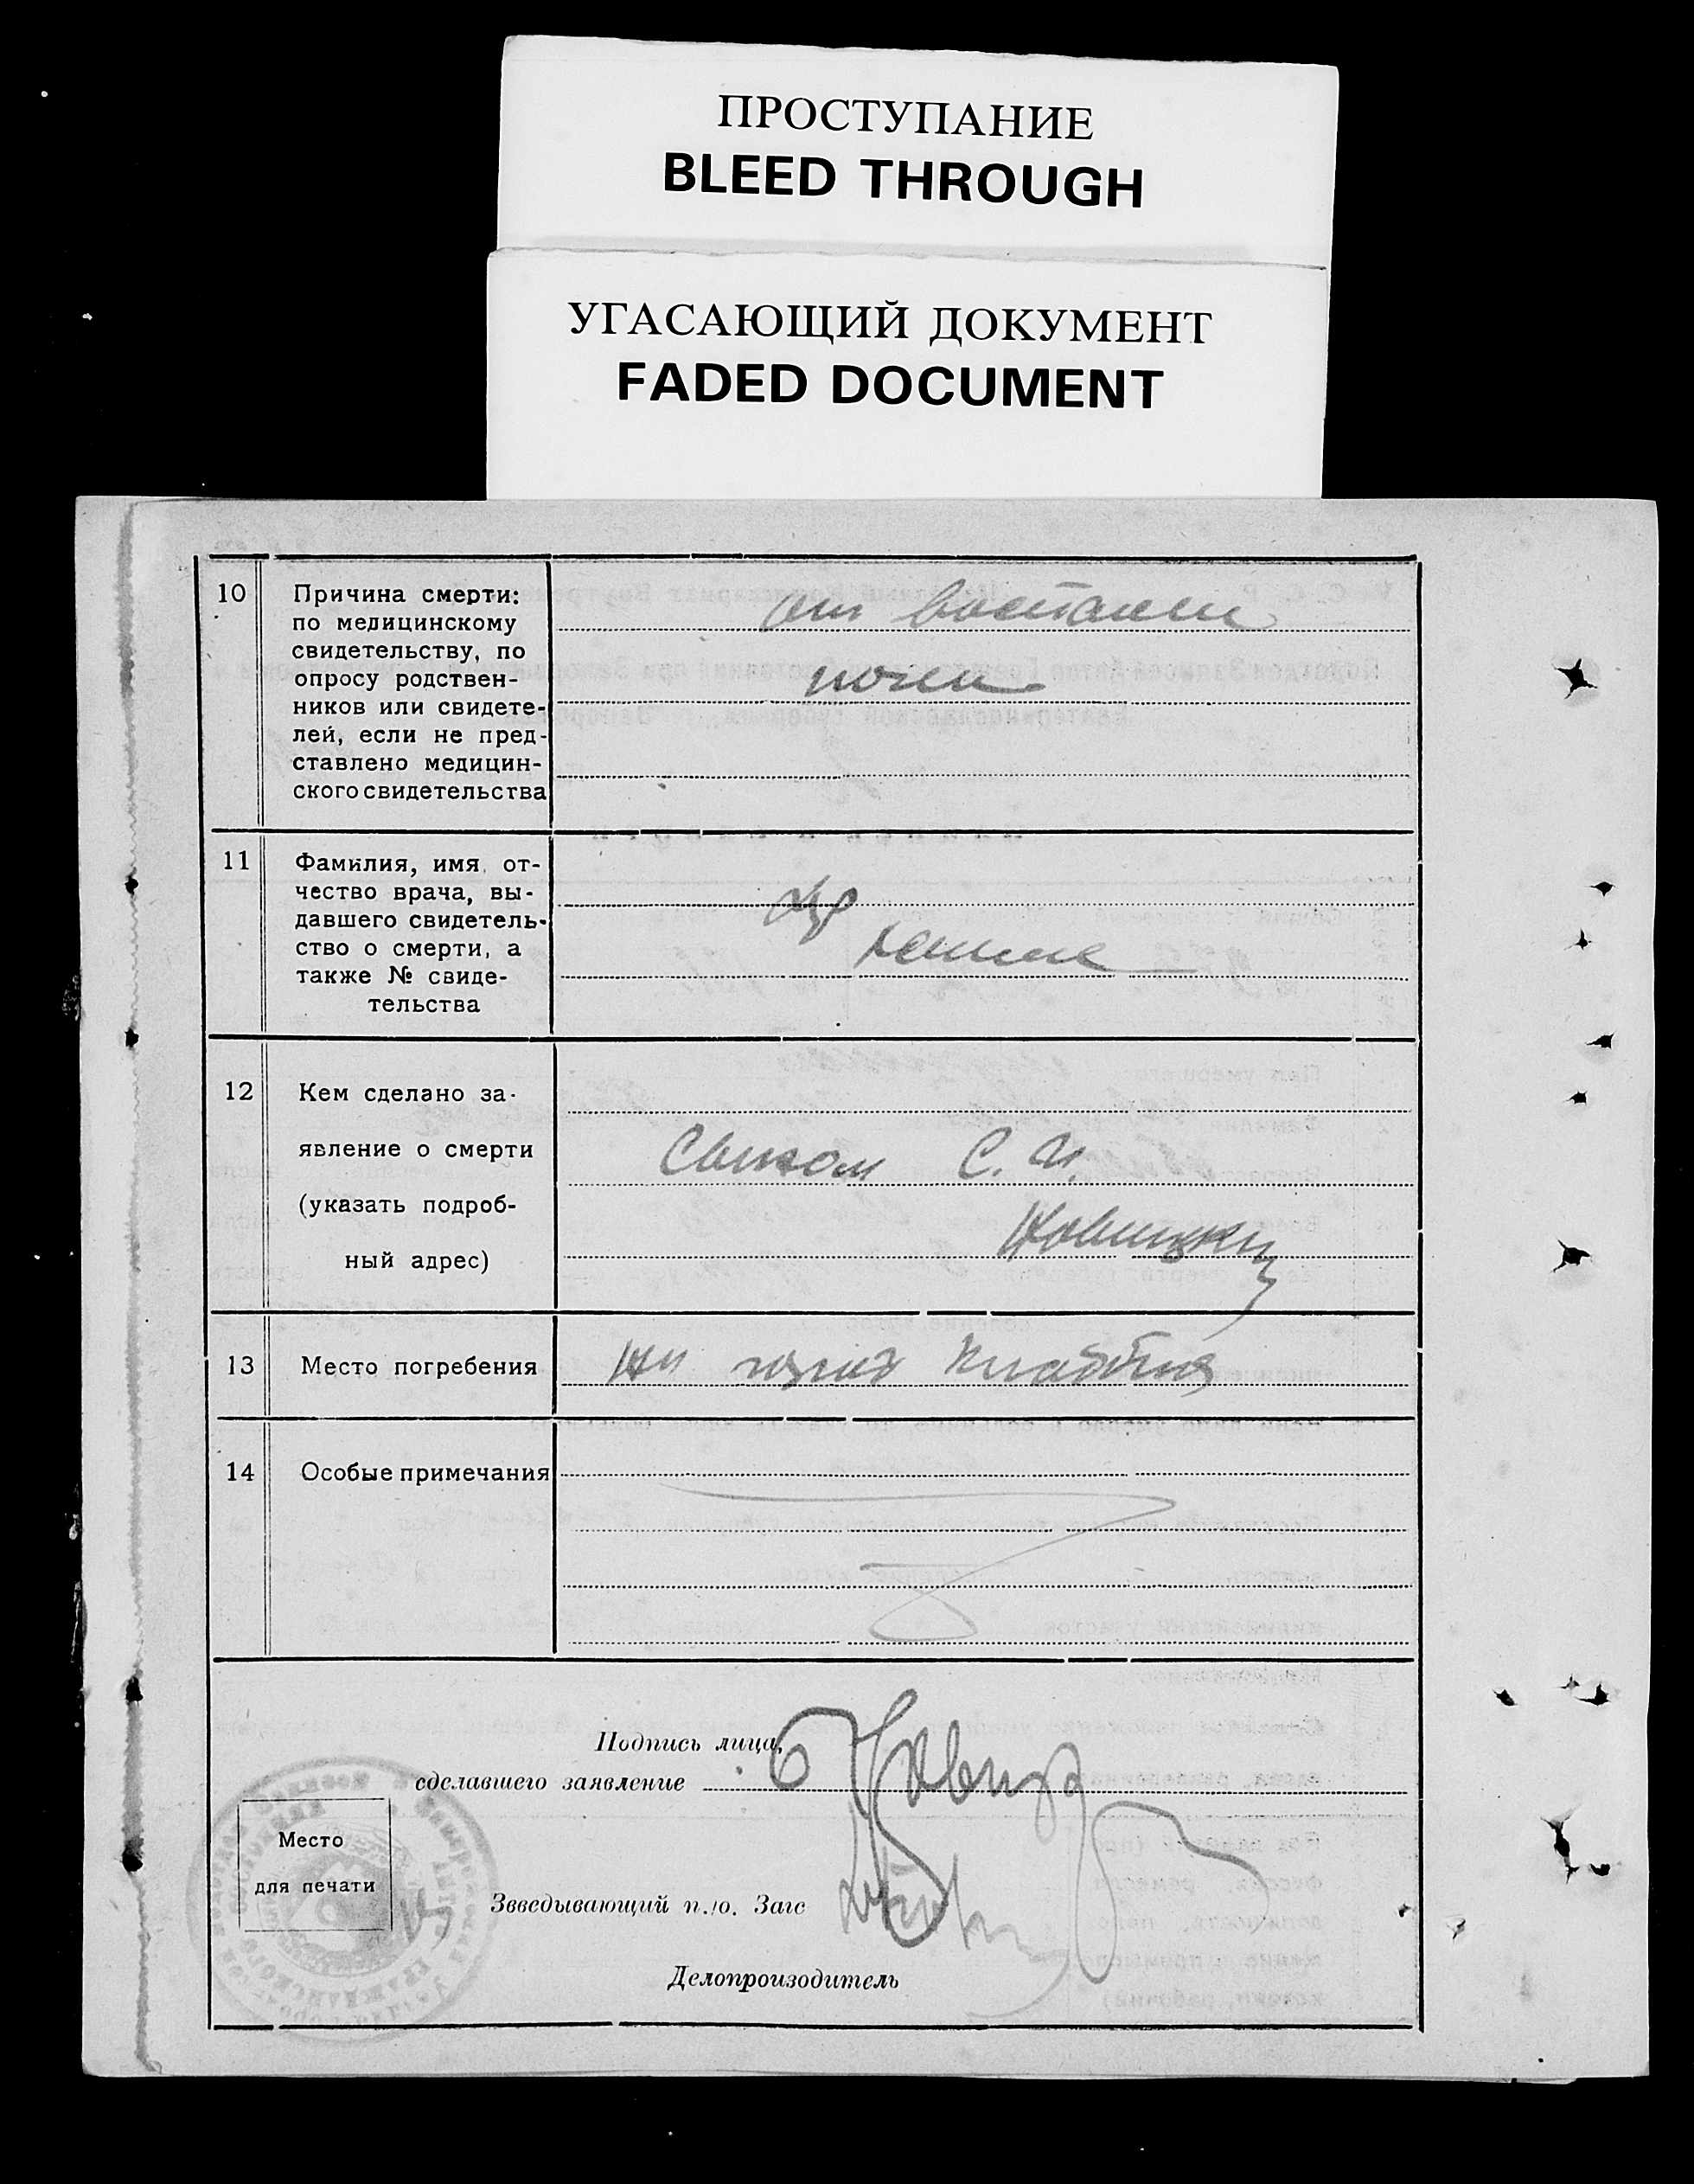 ПРОСТУПАНИЕ
BLEED THROUGH
УГАСАЮЩИЙ ДОКУМЕНТ
FADED DOCUMENT
10
Причина смерти:
по медицинскому
свидетельству, по
опросу родствен-
ников или свидете-
лей, если не пред-
ставлено медицин-
ского свидетельства
от
почек
11
Фамилия, имя, от-
чество врача, вы-
давшего свидетель-
ство о смерти, а
также № свиде-
тельства
12
Кем сделано за-
явление о смерти
(указать подроб-
ный адрес)
С. И.
Новицкий
13
Место погребения
14
Особые примечания
Подпись лица,
сделавшего заявление
Место
для печати
Зведывающий п./о. Загс
Делопроизодитель